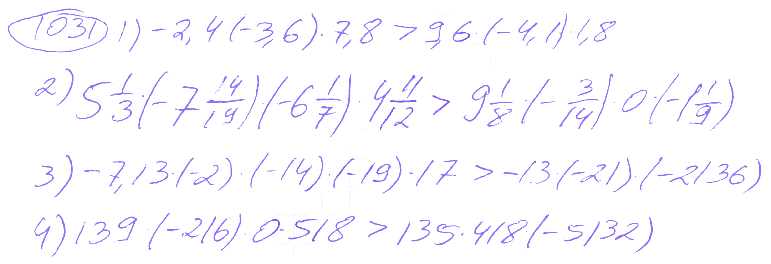 1031 1) -2,4(-3,6)·7,8 > 9,6·(-4,1)·1,8
2) 5 1/3·(-7 14/19)(-6 1/7)·4 11/12 > 9 1/8·(-3/14)·0(-1 1/9)
3) -7,13·(-2)·(-14)·(-19)·17 > -13·(-21)·(-2136)
4) 139·(-216)·0·518 > 135·418(-5132)